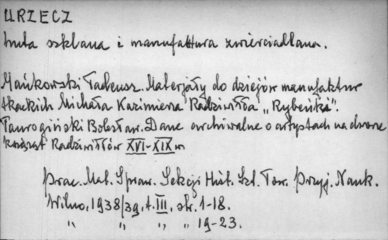 URZECZ
huta szklana i manufaktura zwierciadlana.
Mańkowski Tadeusz. Materjały do dziejów manufaktur
tkackich Michała Kazimierza Radziwiłła "Rybeńki".
Taurogiński Bolesław. Dane archiwalne o artystach na dworze
książąt Radziwiłłów XVI-XIX w
Prac. Mat. Spraw. Sekcji Hist. Szt. Tow. Przyj. Nauk.
Wilno, 1938/39, t. III, str. 1-18.
" " " " 19-23.